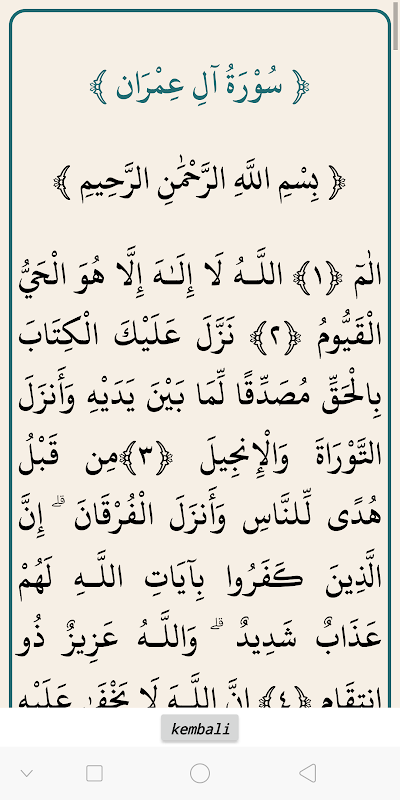 ﴿ سُوْرَةُ آلِ عِمْرَان ﴾
﴿ بِسْمِ اللَّهِ الرَّحْمَٰنِ الرَّحِيمِ ﴾
الٓمٓ ﴿١﴾ اللَّـهُ لَا إِلَـٰهَ إِلَّا هُوَ الْحَيُّ
الْقَيُّومُ ﴿٢﴾ نَزَّلَ عَلَيْكَ الْكِتَابَ
بِالْحَقِّ مُصَدِّقًا لِّمَا بَيْنَ يَدَيْهِ وَأَنزَلَ
التَّوْرَاةَ وَالْإِنجِيلَ ﴿٣﴾مِن قَبْلُ
هُدًى لِّلنَّاسِ وَأَنزَلَ الْفُرْقَانَ ۗ إِنَّ
الَّذِينَ كَفَرُوا بِآيَاتِ اللَّـهِ لَهُمْ
عَذَابٌ شَدِيدٌ ۗ وَاللَّـهُ عَزِيزٌ ذُو
انتِقَامٍ ﴿٤﴾ إِنَّ اللَّـهَ لَا يَخْفَىٰ عَلَيْهِ
kembali